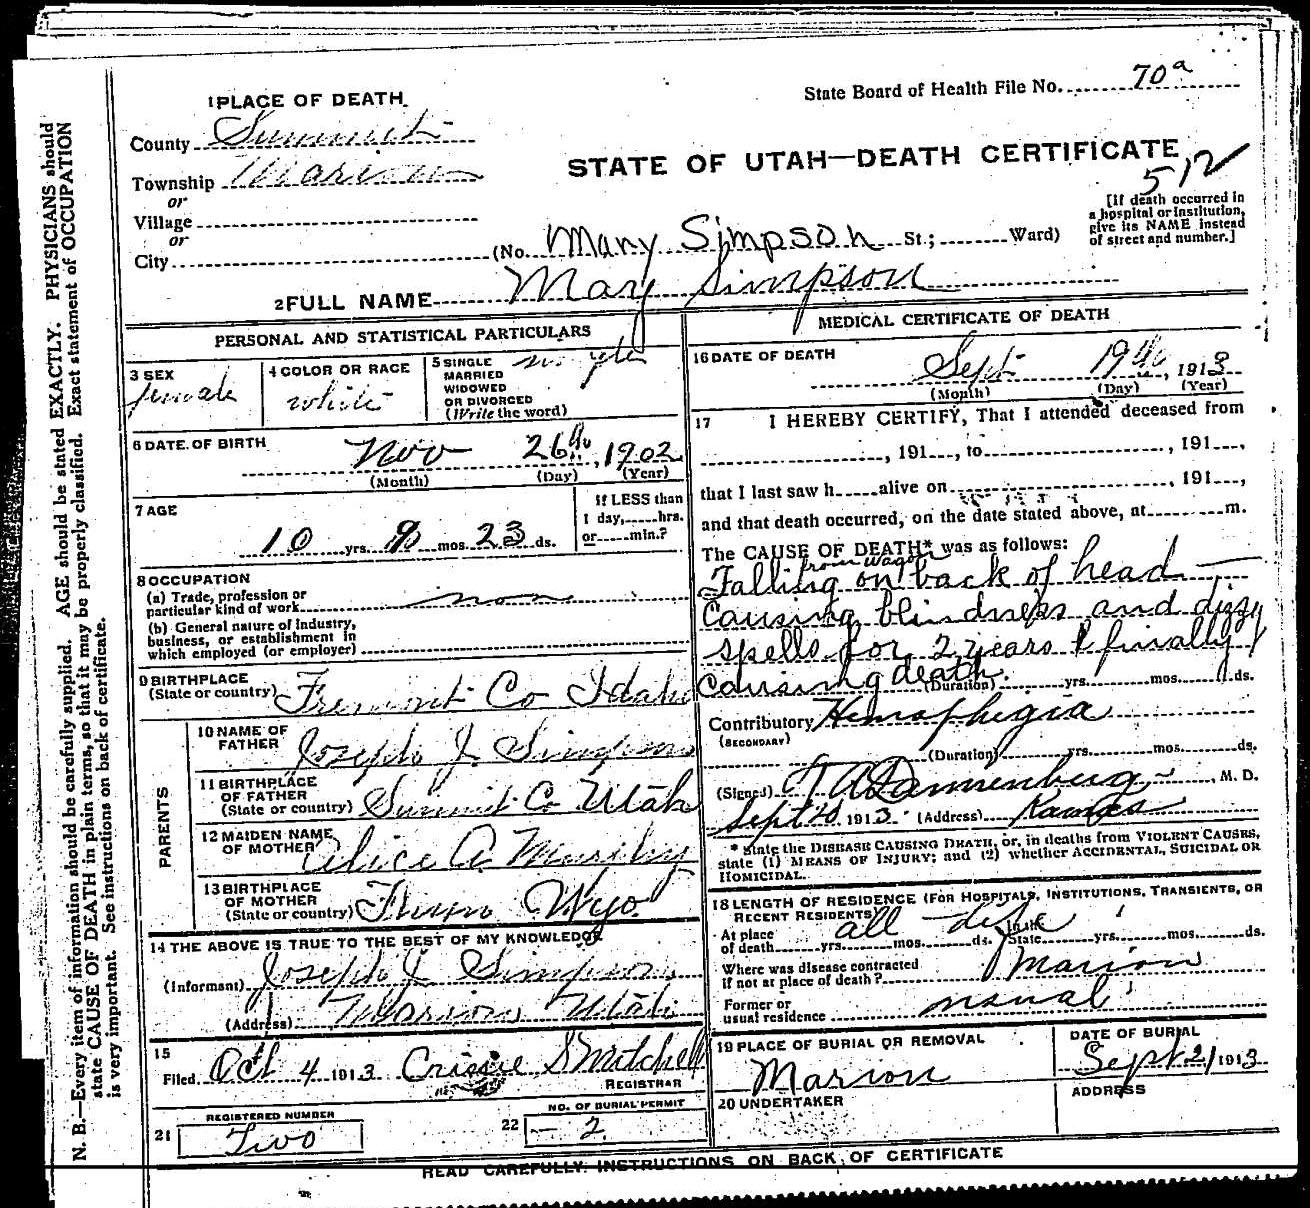 State Board of Health File No. 70a
1 PLACE OF DEATH
County Summit
Township Marion
or
Village
or
City
STATE OF UTAH—DEATH CERTIFICATE
512
[If death occurred in
a hospital or institution,
give its NAME instead
of street and number.]
(No. Mary Simpson St.; Ward)
2 FULL NAME Mary Simpson
PERSONAL AND STATISTICAL PARTICULARS
3 SEX
female
4 COLOR OR RACE
white
5 SINGLE
MARRIED
WIDOWED
OR DIVORCED
(Write the word)
single
6 DATE OF BIRTH
Nov 26th, 1902
(Month) (Day) (Year)
7 AGE
10 yrs. 9 mos. 23 ds.
If LESS than
1 day, hrs.
or min.?
8 OCCUPATION
(a) Trade, profession or
particular kind of work non
(b) General nature of industry,
business, or establishment in
which employed (or employer)
9 BIRTHPLACE
(State or country) Fremont Co Idaho
PARENTS
10 NAME OF
FATHER Joseph J. Simpson
11 BIRTHPLACE
OF FATHER
(State or country) Summit Co Utah
12 MAIDEN NAME
OF MOTHER Alice A.
13 BIRTHPLACE
OF MOTHER
(State or country) Wyo.
14 THE ABOVE IS TRUE TO THE BEST OF MY KNOWLEDGE
(Informant) Joseph J Simpson
(Address) Marion Utah
15
Filed Oct 4 1913 Crissie S Mitchell
REGISTRAR
21 REGISTERED NUMBER
Two
22 NO. OF BURIAL PERMIT
2
MEDICAL CERTIFICATE OF DEATH
16 DATE OF DEATH
Sept 19th, 1913
(Month) (Day) (Year)
17 I HEREBY CERTIFY, That I attended deceased from
, 191 , to , 191 ,
that I last saw h alive on , 191 ,
and that death occurred, on the date stated above, at m.
The CAUSE OF DEATH* was as follows:
from wagon
Falling on back of head
causing blindness and dizzy
spells for 2 years & finally
causing death.
(Duration) yrs. mos. ds.
Contributory Hemaphegia
(SECONDARY)
(Duration) yrs. mos. ds.
(Signed) Dannenberg, M. D.
Sept 20 1913 (Address) Kamas
* State the DISEASE CAUSING DEATH, or, in deaths from VIOLENT CAUSES,
state (1) MEANS OF INJURY; and (2) whether ACCIDENTAL, SUICIDAL OR
HOMICIDAL.
18 LENGTH OF RESIDENCE (FOR HOSPITALS, INSTITUTIONS, TRANSIENTS, OR
RECENT RESIDENTS)
At place all life In the
of death yrs. mos. ds. State yrs. mos. ds.
Where was disease contracted
if not at place of death? Marion
Former or
usual residence
19 PLACE OF BURIAL OR REMOVAL
Marion
DATE OF BURIAL
Sept 21 1913
20 UNDERTAKER
ADDRESS
READ CAREFULLY: INSTRUCTIONS ON BACK OF CERTIFICATE
N. B.—Every item of information should be carefully supplied. AGE should be stated EXACTLY. PHYSICIANS should
state CAUSE OF DEATH in plain terms, so that it may be properly classified. Exact statement of OCCUPATION
is very important. See instructions on back of certificate.